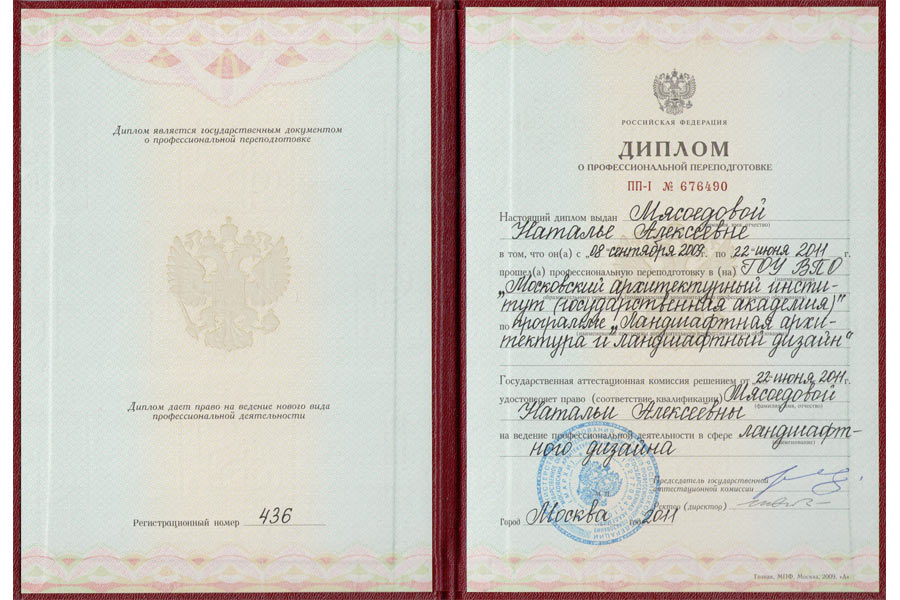 Диплом является государственным документом
о профессиональной переподготовке
Диплом дает право на ведение нового вида
профессиональной деятельности
Регистрационный номер 436
РОССИЙСКАЯ ФЕДЕРАЦИЯ
ДИПЛОМ
О ПРОФЕССИОНАЛЬНОЙ ПЕРЕПОДГОТОВКЕ
ПП-I № 676490
Настоящий диплом выдан Мясоедовой
Наталье Алексеевне
в том, что он(а) с „08" сентября 2009г. по „22" июня 2011 г.
прошел(а) профессиональную переподготовку в (на) ГОУ ВПО
„Московский архитектурный инсти-
тут (государственная академия)"
по программе „Ландшафтная архи-
тектура и ландшафтный дизайн"
Государственная аттестационная комиссия решением от „22" июня 2011г.
удостоверяет право (соответствие квалификации) Мясоедовой
(фамилия, имя, отчество)
Натальи Алексеевны
на ведение профессиональной деятельности в сфере ландшафт-
(наименование)
ного дизайна
Председатель государственной
аттестационной комиссии
Ректор (директор)
М.П.
Город Москва год 2011
Гознак, МПФ, Москва, 2009, «А»